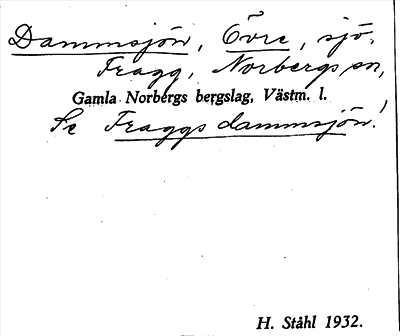 Dammsjön, Övre, sjö.
Fragg, Norbergs sn,
Gamla Norbergs bergslag, Västm. l.
Se Fraggs dammsjön!
H. Ståhl 1932.